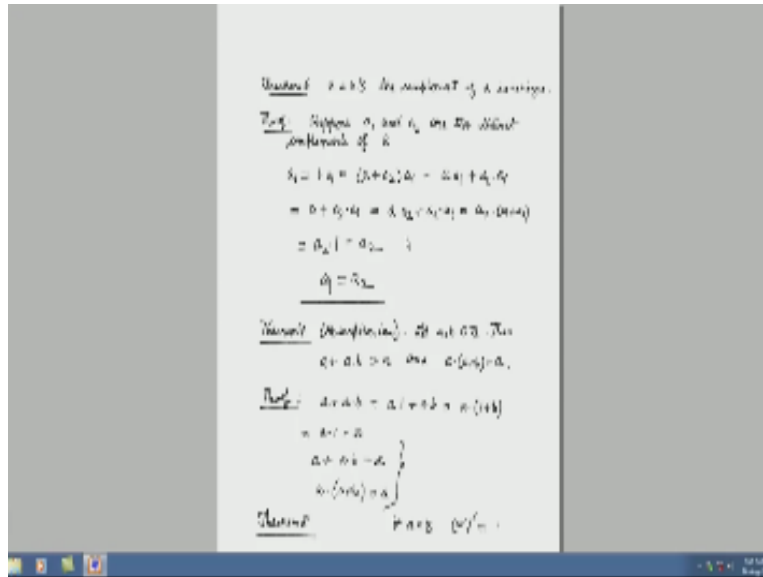 Theorem ∀ a ∈ B the complement of a is unique.
Proof: Suppose a₁ and a₂ are two distinct
complements of a
a₁ = 1·a₁ = (a+a₂)a₁ = a·a₁ + a₂·a₁
= 0 + a₂·a₁ = a·a₂ + a₂·a₁ = a₂·(a+a₁)
= a₂·1 = a₂
a₁ = a₂
Theorem (Absorption law). a,b ∈ B. Then
a + a·b = a and a·(a+b) = a.
Proof: a + a·b = a·1 + a·b = a·(1+b)
= a·1 = a
a + a·b = a
a·(a+b) = a
Theorem ∀ a ∈ B (a')' =